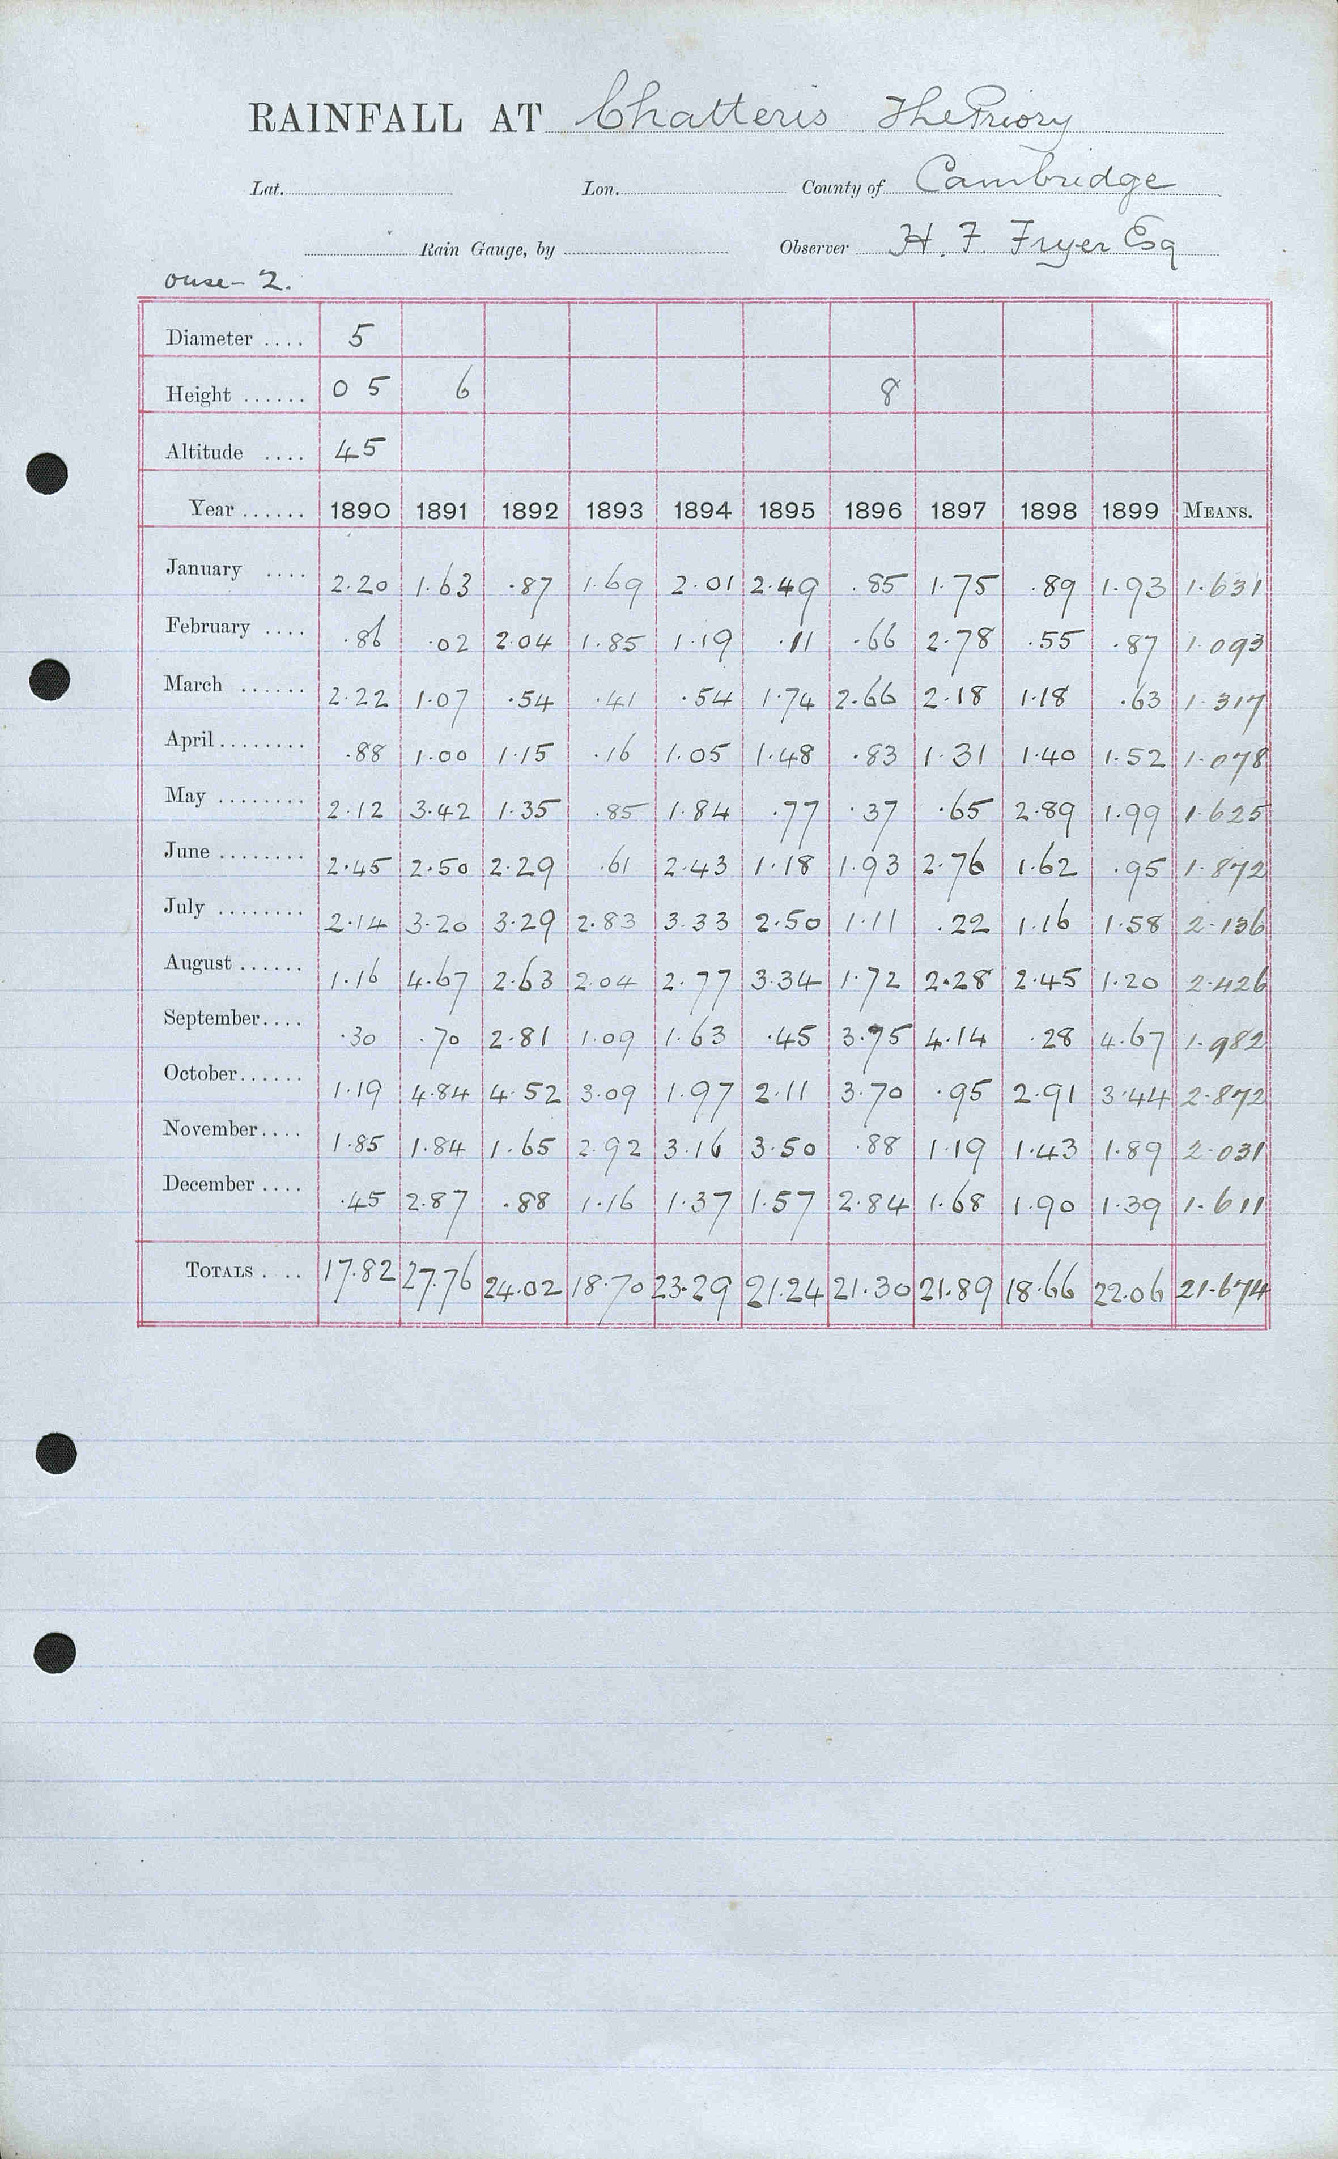 RAINFALL AT Chatteris The Priory
Lat. Lon. County of Cambridge
Rain Gauge, by Observer H. F. Fryer Esq
Ouse - 2.
Diameter .... 5
Height ...... 0 5 6 8
Altitude .... 45
Year ...... 1890 1891 1892 1893 1894 1895 1896 1897 1898 1899 MEANS.
January .... 2.20 1.63 .87 1.69 2.01 2.49 .85 1.75 .89 1.93 1.631
February .... .86 .02 2.04 1.85 1.19 .11 .66 2.78 .55 .87 1.093
March ...... 2.22 1.07 .54 .41 .54 1.74 2.66 2.18 1.18 .63 1.317
April ........ .88 1.00 1.15 .16 1.05 1.48 .83 1.31 1.40 1.52 1.078
May ........ 2.12 3.42 1.35 .85 1.84 .77 .37 .65 2.89 1.99 1.625
June ........ 2.45 2.50 2.29 .61 2.43 1.18 1.93 2.76 1.62 .95 1.872
July ........ 2.14 3.20 3.29 2.83 3.33 2.50 1.11 .22 1.16 1.58 2.136
August ...... 1.16 4.67 2.63 2.04 2.77 3.34 1.72 2.28 2.45 1.20 2.426
September.... .30 .70 2.81 1.09 1.63 .45 3.75 4.14 .28 4.67 1.982
October...... 1.19 4.84 4.52 3.09 1.97 2.11 3.70 .95 2.91 3.44 2.872
November.... 1.85 1.84 1.65 2.92 3.16 3.50 .88 1.19 1.43 1.89 2.031
December .... .45 2.87 .88 1.16 1.37 1.57 2.84 1.68 1.90 1.39 1.611
TOTALS .... 17.82 27.76 24.02 18.70 23.29 21.24 21.30 21.89 18.66 22.06 21.674